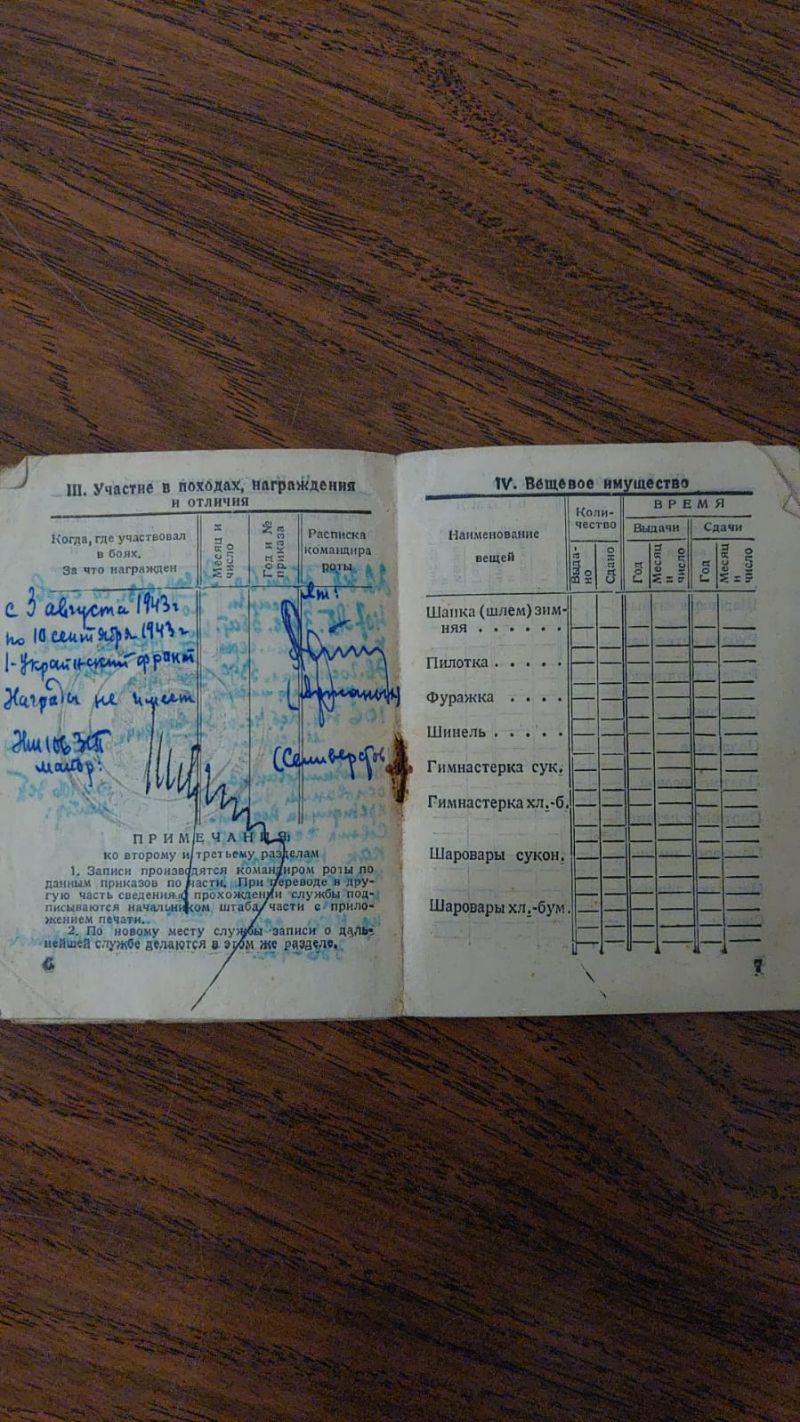 III. Участие в походах, награждения
и отличия
Когда, где участвовал
в боях.
За что награжден
Месяц и
число
Год и №
приказа
Расписка
командира
роты
с 3 августа 1943 г
по 10 сентября 1943 г
1-Украинский фронт
Награды не имеет
майор:
ПРИМЕЧАНИЯ
ко второму и третьему разделам
1. Записи производятся командиром роты по
данным приказов по части. При переводе в дру-
гую часть сведения о прохождении службы под-
писываются начальником штаба части с прило-
жением печати.
2. По новому месту службы записи о даль-
нейшей службе делаются в этом же разделе.
6
IV. Вещевое имущество
Наименование
вещей
Коли-
чество
ВРЕМЯ
Выдачи
Сдачи
Выда-
но
Сдано
Год
Месяц
и
число
Год
Месяц
и
число
Шапка (шлем) зим-
няя . . . . . .
Пилотка . . . . .
Фуражка . . . .
Шинель . . . . .
Гимнастерка сук.
Гимнастерка хл.-б.
Шаровары сукон.
Шаровары хл.-бум.
7